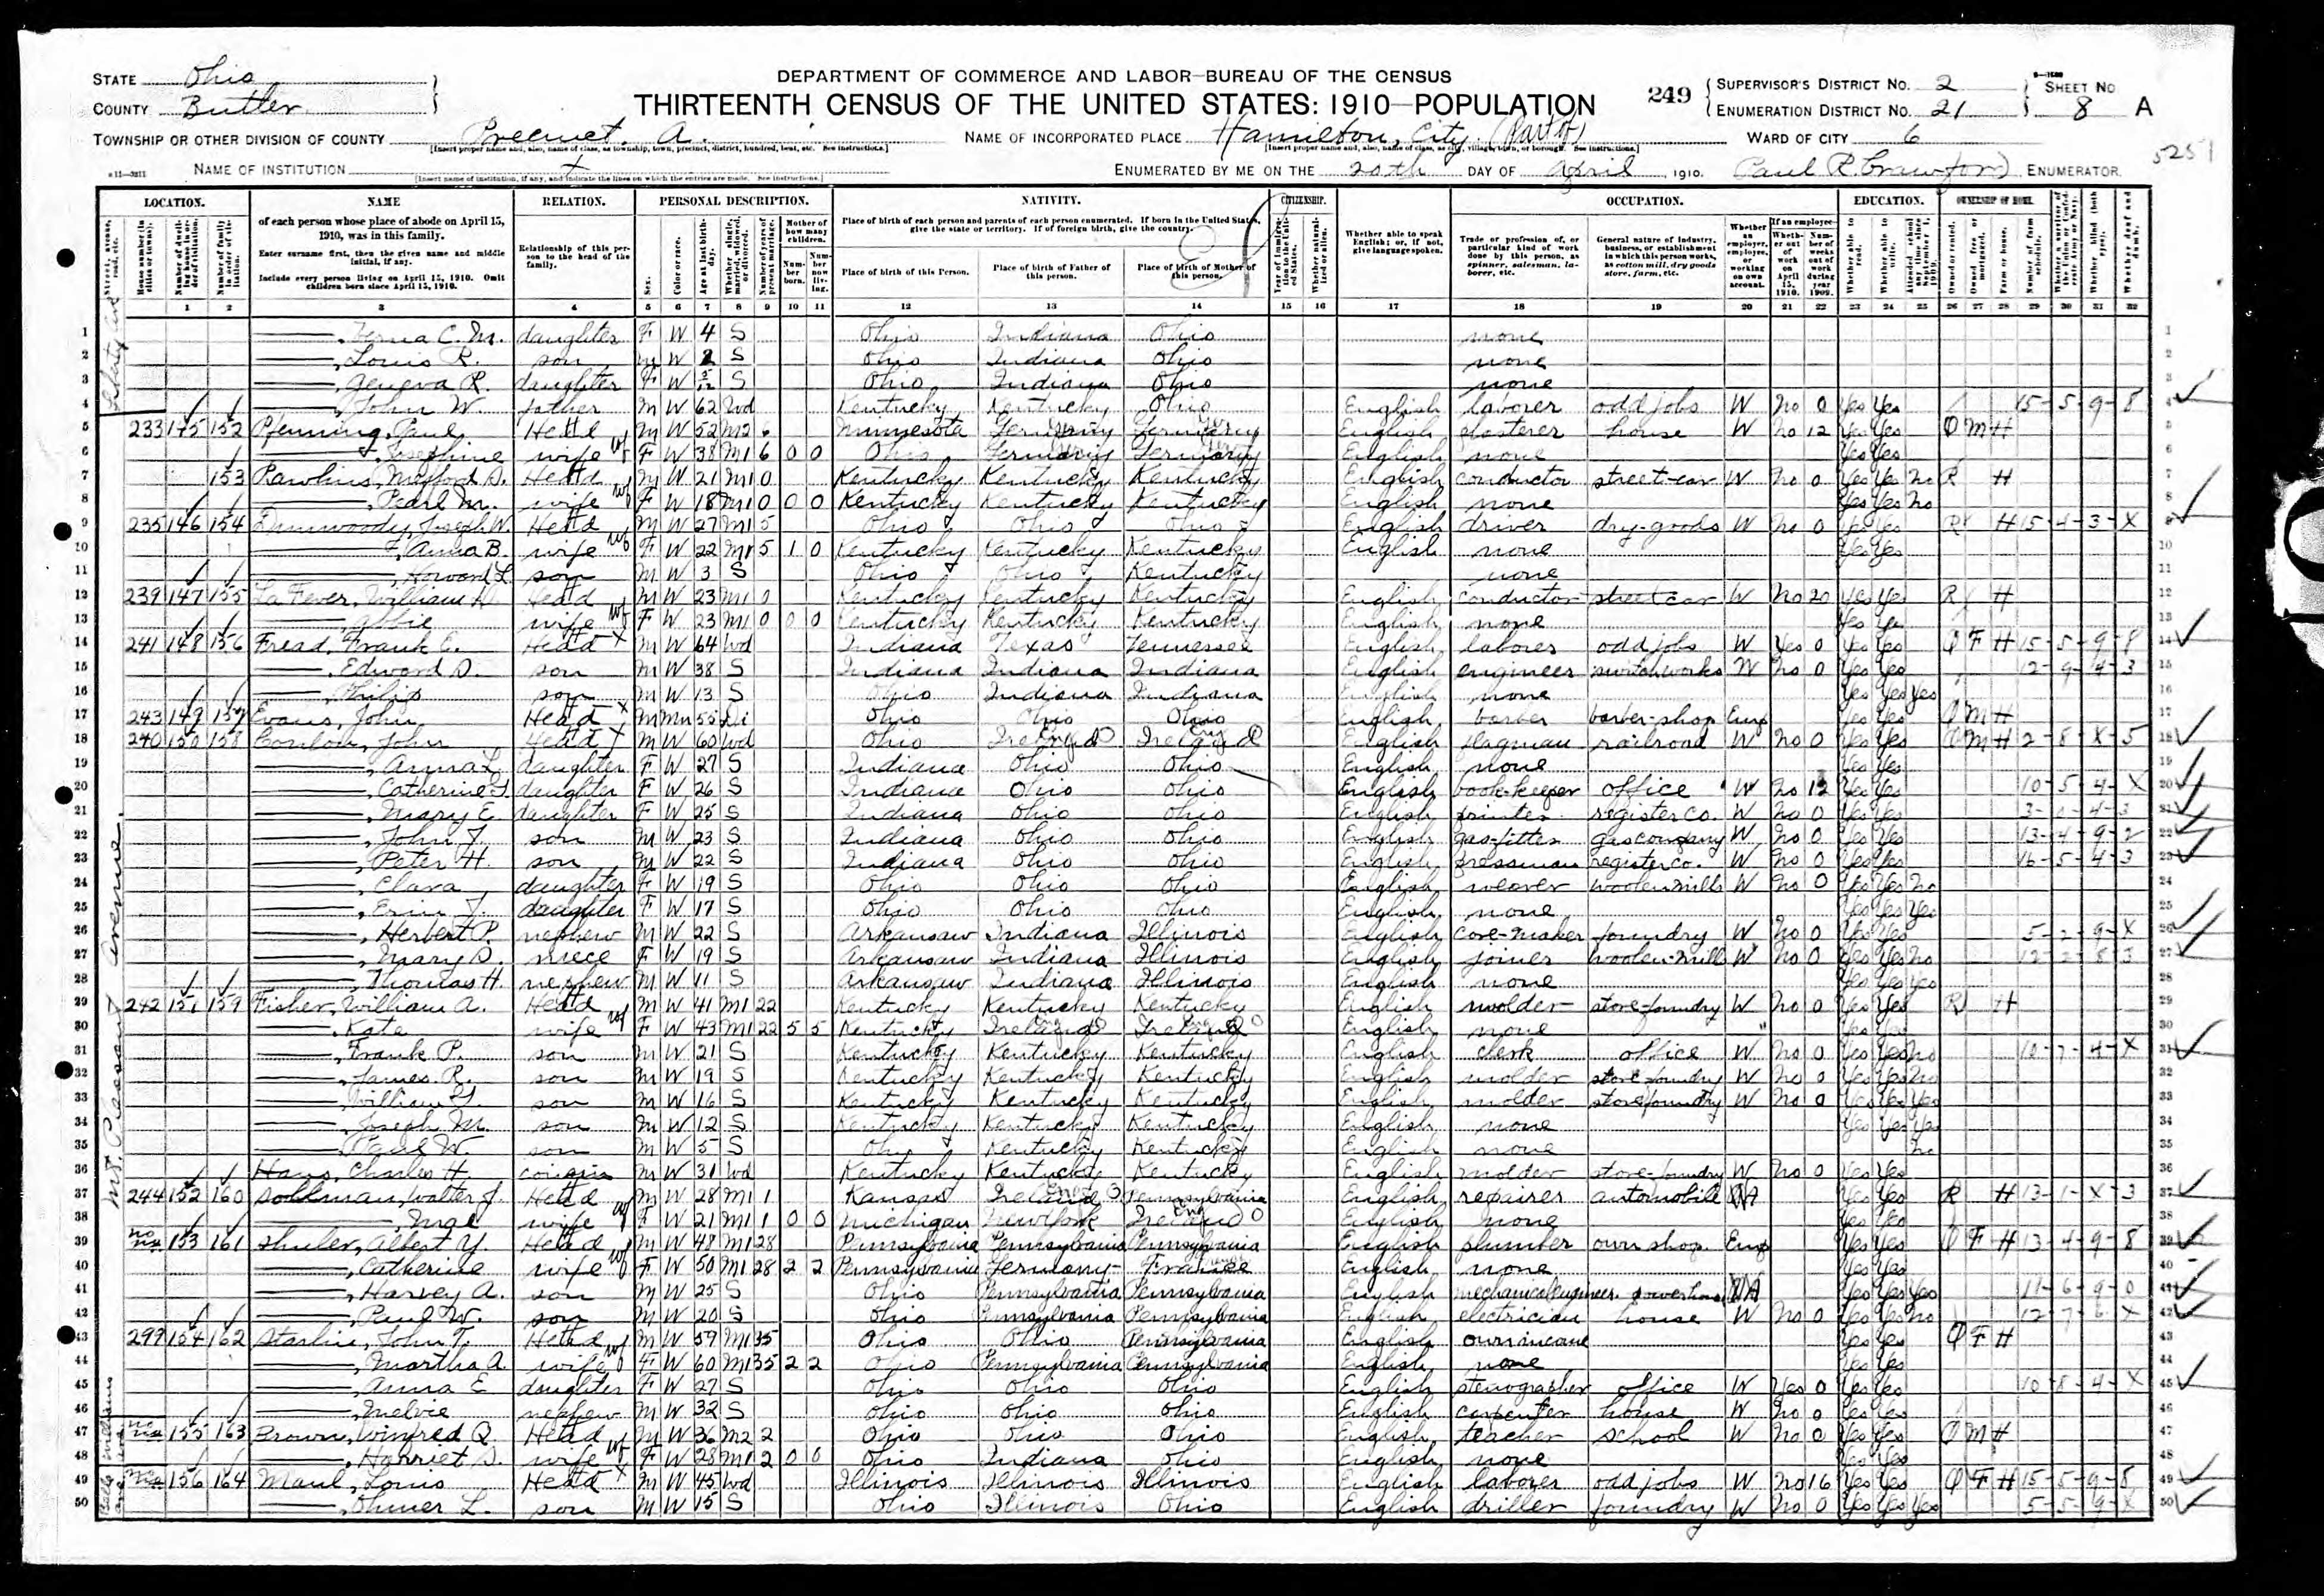 STATE Ohio
COUNTY Butler
DEPARTMENT OF COMMERCE AND LABOR—BUREAU OF THE CENSUS
THIRTEENTH CENSUS OF THE UNITED STATES: 1910—POPULATION
249
SUPERVISOR'S DISTRICT No. 2
ENUMERATION DISTRICT No. 21
SHEET No 8 A
TOWNSHIP OR OTHER DIVISION OF COUNTY Precinct A.
NAME OF INCORPORATED PLACE Hamilton, City (Part of)
WARD OF CITY 6
5251
NAME OF INSTITUTION
ENUMERATED BY ME ON THE 20th DAY OF April, 1910. Paul R. Crawford ENUMERATOR.
LOCATION. NAME RELATION. PERSONAL DESCRIPTION. NATIVITY. CITIZENSHIP. OCCUPATION. EDUCATION. OWNERSHIP OF HOME.
of each person whose place of abode on April 15, 1910, was in this family.
Enter surname first, then the given name and middle initial, if any.
Include every person living on April 15, 1910. Omit children born since April 15, 1910.
Relationship of this person to the head of the family.
Place of birth of each person and parents of each person enumerated. If born in the United States, give the state or territory. If of foreign birth, give the country.
Place of birth of this Person. Place of birth of Father of this person. Place of birth of Mother of this person.
Whether able to speak English; or, if not, give language spoken.
Trade or profession of, or particular kind of work done by this person, as spinner, salesman, laborer, etc.
General nature of industry, business, or establishment in which this person works, as cotton mill, dry goods store, farm, etc.
1 2 3 4 5 6 7 8 9 10 11 12 13 14 15 16 17 18 19 20 21 22 23 24 25 26 27 28 29 30 31 32
Mt. Pleasant Avenue.
1 ——, Verna C. M. daughter F W 4 S Ohio Indiana Ohio none
2 ——, Louis R. son M W 2 S Ohio Indiana Ohio none
3 ——, Geneva R. daughter F W S Ohio Indiana Ohio none
4 ——, John W. father M W 62 Wd Kentucky Kentucky Ohio English laborer odd jobs W No 0 Yes Yes 15-5-9-8
5 233 145 152 Pfenning, Paul Head M W 52 M2 6 Minnesota Germany Germany English plasterer house W No 12 Yes Yes O M H
6 ——, Josephine wife F W 38 M1 6 0 0 Ohio Germany Germany English none Yes Yes
7 153 Rawlins, Mofford D. Head M W 21 M1 0 Kentucky Kentucky Kentucky English conductor street-car W No 0 Yes Yes No R H
8 ——, Pearl M. wife F W 18 M1 0 0 0 Kentucky Kentucky Kentucky English none Yes Yes No
9 235 146 154 Dunwoody, Joseph W. Head M W 27 M1 5 Ohio Ohio Ohio English driver dry-goods W No 0 Yes Yes R H 15-4-3-X
10 ——, Anna B. wife F W 22 M1 5 1 0 Kentucky Kentucky Kentucky English none Yes Yes
11 ——, Howard L. son M W 3 S Ohio Ohio Kentucky none
12 239 147 155 La Fever, William H. Head M W 23 M1 0 Kentucky Kentucky Kentucky English conductor street car W No 20 Yes Yes R H
13 ——, wife F W 23 M1 0 0 0 Kentucky Kentucky Kentucky English none Yes Yes
14 241 148 156 Fread, Frank E. Head M W 64 Wd Indiana Texas Tennessee English laborer odd jobs W Yes 0 Yes Yes O F H 15-5-9-8
15 ——, Edward D. son M W 38 S Indiana Indiana Indiana English engineer W No 0 Yes Yes 12-9-4-3
16 ——, Philip son M W 13 S Ohio Indiana Indiana English none Yes Yes Yes
17 243 149 157 Evans, John Head M Mu 55 Ohio Ohio Ohio English barber barber-shop Emp Yes Yes O M H
18 240 150 158 Conlon, John Head M W 60 Wd Ohio Ireland Ireland English flagman railroad W No 0 Yes Yes O M H 2-8-X-5
19 ——, Anna L. daughter F W 27 S Indiana Ohio Ohio English none Yes Yes
20 ——, Catherine F. daughter F W 26 S Indiana Ohio Ohio English book-keeper office W No 12 Yes Yes 10-5-4-X
21 ——, Mary E. daughter F W 25 S Indiana Ohio Ohio English printer register co. W No 0 Yes Yes
22 ——, John J. son M W 23 S Indiana Ohio Ohio English gas-fitter gas company W No 0 Yes Yes 13-4-9-2
23 ——, Peter H. son M W 22 S Indiana Ohio Ohio English pressman register co. W No 0 Yes Yes 16-5-4-3
24 ——, Clara daughter F W 19 S Ohio Ohio Ohio English weaver woolen mills W No 0 Yes Yes No
25 ——, Erin J. daughter F W 17 S Ohio Ohio Ohio English none Yes Yes Yes
26 ——, Herbert P. nephew M W 22 S Arkansaw Indiana Illinois English core-maker foundry W No 0 Yes Yes 5-2-9-X
27 ——, Mary D. niece F W 19 S Arkansaw Indiana Illinois English joiner woolen-mill W No 0 Yes Yes No 12-2-8-3
28 ——, Thomas H. nephew M W 11 S Arkansaw Indiana Illinois English none Yes Yes Yes
29 242 151 159 Fisher, William A. Head M W 41 M1 22 Kentucky Kentucky Kentucky English molder stove-foundry W No 0 Yes Yes R H
30 ——, Kate wife F W 43 M1 22 5 5 Kentucky Ireland Ireland English none Yes Yes
31 ——, Frank P. son M W 21 S Kentucky Kentucky Kentucky English clerk office W No 0 Yes Yes No 10-7-4-X
32 ——, James R. son M W 19 S Kentucky Kentucky Kentucky English molder stove foundry W No 0 Yes Yes No
33 ——, William son M W 16 S Kentucky Kentucky Kentucky English molder stove foundry W No 0 Yes Yes Yes
34 ——, Joseph M. son M W 12 S Kentucky Kentucky Kentucky English none Yes Yes Yes
35 ——, Paul W. son M W 5 S Ohio Kentucky Kentucky English none No
36 Hays, Charles H. cousin M W 31 Wd Kentucky Kentucky Kentucky English molder stove-foundry W No 0 Yes Yes
37 244 152 160 Sollman, Walter J. Head M W 28 M1 1 Kansas Ireland Pennsylvania English repairer automobile OA Yes Yes R H 13-1-X-3
38 ——, Mae wife F W 21 M1 1 0 0 Michigan New York Ireland English none Yes Yes
39 no no 153 161 Shuler, Albert Y. Head M W 48 M1 28 Pennsylvania Pennsylvania Pennsylvania English plumber own shop Emp Yes Yes O F H 13-4-9-8
40 ——, Catherine wife F W 50 M1 28 2 2 Pennsylvania Germany France English none Yes Yes
41 ——, Harvey A. son M W 25 S Ohio Pennsylvania Pennsylvania English mechanical engineer power house Yes Yes Yes 11-6-9-0
42 ——, Paul W. son M W 20 S Ohio Pennsylvania Pennsylvania English electrician house W No 0 Yes Yes No 12-7-6-X
43 299 154 162 Starlin, John T. Head M W 59 M1 35 Ohio Ohio Pennsylvania English own income Yes Yes O F H
44 ——, Martha A. wife F W 60 M1 35 2 2 Ohio Pennsylvania Pennsylvania English none Yes Yes
45 ——, Anna E. daughter F W 27 S Ohio Ohio Ohio English stenographer office W Yes 0 Yes Yes 10-8-4-X
46 ——, Melvie nephew M W 32 S Ohio Ohio Ohio English carpenter house W No 0 Yes Yes
47 155 163 Brown, Winfred Q. Head M W 36 M2 2 Ohio Ohio Ohio English teacher school W No 0 Yes Yes O M H
48 ——, Harriet D. wife F W 28 M1 2 0 0 Ohio Indiana Ohio English none Yes Yes
49 156 164 Maul, Louis Head M W 45 Wd Illinois Illinois Illinois English laborer odd jobs W No 16 Yes Yes O F H 15-5-9-8
50 ——, Ohmer L. son M W 15 S Ohio Illinois Ohio English driller foundry W No 0 Yes Yes Yes 5-5-9-X